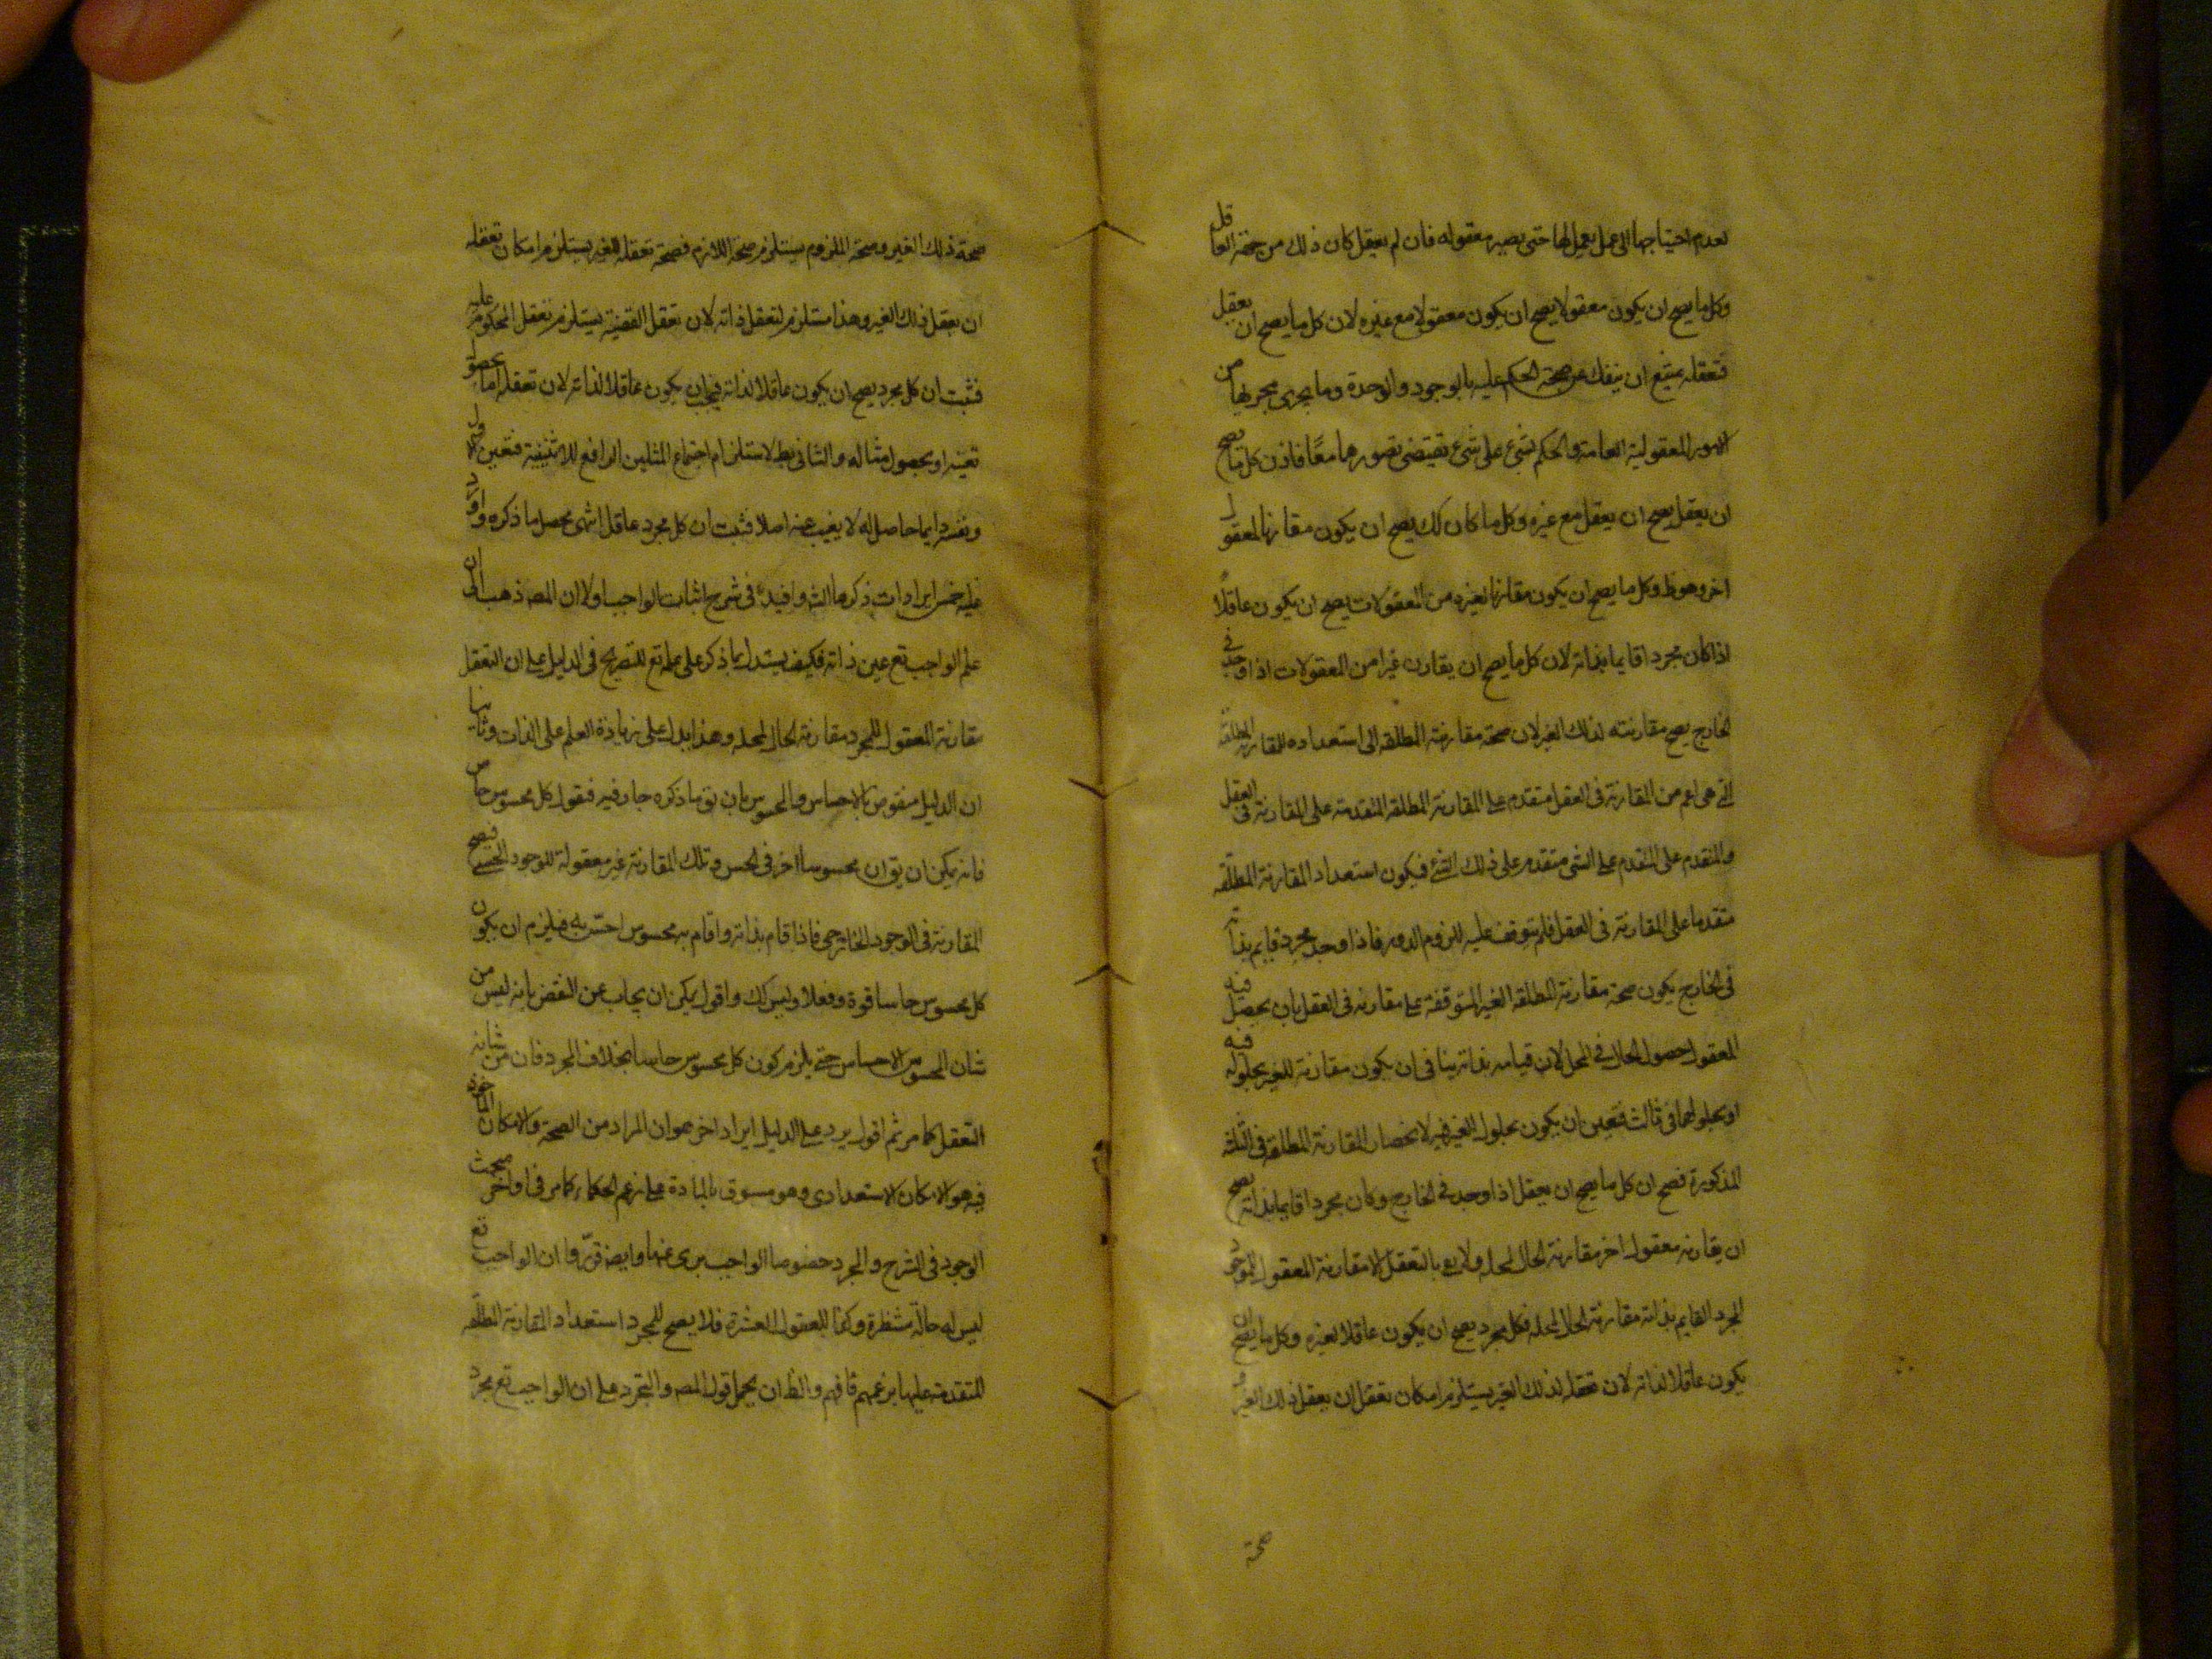 لعدم احتياجها الى عمل يعمل لها حتى يصير معقوله فان لم يعقل كان ذلك من جهة العاقل
وكل ما يصح ان يكون معقولا يصح ان يكون معقولا مع غيره لان كل ما يصح ان يعقل
فتعقله يمتنع ان ينفك عن صحة الحكم عليه بالوجود والوحدة وما يجرى مجريها من
الامور المعقولية العامة والحكم بشئ على شئ يقتضى تصورهما معًا فاذن كل ما يصح
ان يعقل يصح ان يعقل مع غيره وكل ما كان كك يصح ان يكون مقارنا لمعقول
اخر وهو ظ وكل ما يصح ان يكون مقارنا لغيره من المعقولات يصح ان يكون عاقلًا
اذا كان مجردا قايما بذاته لان كل ما يصح ان يقارن غيرا من المعقولات اذا وجد فى
الخارج يصح مقارنته لذلك الغير لان صحة مقارنة المطلقه الى استعداده للمقارنة المطلقة
التى هى اعم من المقارنة فى العقل متقدم على المقارنة المطلقه المتقدمة على المقارنة فى العقل
والمتقدم على المتقدم على الشى متقدم على ذلك الشئ فيكون استعداد المقارنة المطلقه
متقدما على المقارنة فى العقل فلم يتوقف عليه للزوم الدور فاذا وجد مجرد قايم بذاته
فى الخارج يكون صحة مقارنة المطلقه الغير المتوقفة على مقارنه فى العقل بان يحصل فيه
المعقول حصول الحال فى المحل لان قيامه بذاته ينافى ان يكون مقارنة للغير بحلوله فيه
او بحلولهما فى ثالث فتعين ان يكون بحلول الغير فيه لانحصار المقارنة المطلقة فى الثلثة
المذكورة فصح ان كل ما يصح ان يعقل اذا وجد فى الخارج وكان مجردا قايما بذاته يصح
ان يقارنه معقول اخر مقارنة الحال لمحله ولا بالتعقل الا مقارنة المعقول للموجود
المجرد القايم بذاته مقارنة الحال لمحله فكل مجرد يصح ان يكون عاقلا لغيره وكل ما يصح ان
يكون عاقلا لذاته لان تعقله لذلك الغير يستلزم امكان تعقل ان يعقل ذلك الغير
صحة
صحة ذلك الغير وصحة الملزوم يستلزم صحة اللازم فصحة تعقله للغير يستلزم امكان تعقله
ان يعقل ذلك الغير وهذا مستلزم لتعقل ذاته لان تعقل القضية يستلزم تعقل المحكوم عليه
فثبت ان كل مجرد يصح ان يكون عاقلا لذاته فيجب ان يكون عاقلا لذاته لان تعقله اما بحصول
نفسه او بحصول مثاله والثانى بط لاستلزام اجتماع المثلين الرافع للاثنينية فتعين الاول
ونفسه دايما حاصل له لا يغيب عنه اصلا فثبت ان كل مجرد عاقل انتهى محصل ما ذكره واورد
عليه خمس ايرادات ذكرها الش وافيد فى شرح اثبات الواجب اولا ان المصه ذهب الى ان
علم الواجب تع عين ذاته فكيف يستدل بما ذكر على علمه تع للتصريح فى الدليل على ان التعقل
مقارنة المعقول للمجرد مقارنة الحال لمحله وهذا يدل على زيادة العلم على الذات وثانيها
ان الدليل منقوض بالاحساس والمحسوس بان يق ما ذكره جار فيه فنقول كل محسوس حاس
فانه يمكن ان يق ان محسوسا اخر فى الحس وتلك المقارنة غير معقولة للوجود الحسى فيصح
المقارنة فى الوجود الخارجى فاذا قام بذاته واقام به محسوس احسّ به فيلزم ان يكون
كل محسوس حاسا قوة وفعلا وليس كك واقول يمكن ان يجاب عن النقض بانه ليس من
شان المحسوس الاحساس حتى يلزم كون كل محسوس حاسا بخلاف المجرد فان من شانه
التعقل كما مر ثم اقول يرد على الدليل ايراد اخر هو ان المراد من الصحة والامكان الماخوذ
فيه هو الامكان الاستعدادى وهو مسبوق بالمادة على زعم الحكماء كما مر فى اواخر مبحث
الوجود فى الشرح والمجرد خصوصا الواجب برى عنها وايضا قرّروا ان الواجب تع
ليس له حالة منتظرة وكذا للعقول العشرة فلا يصح للمجرد استعداد المقارنة المطلقه
المتقدمة عليها بزعمهم فافهم والظ ان يحمل قول المصه والتجرد على ان الواجب تع مجرد